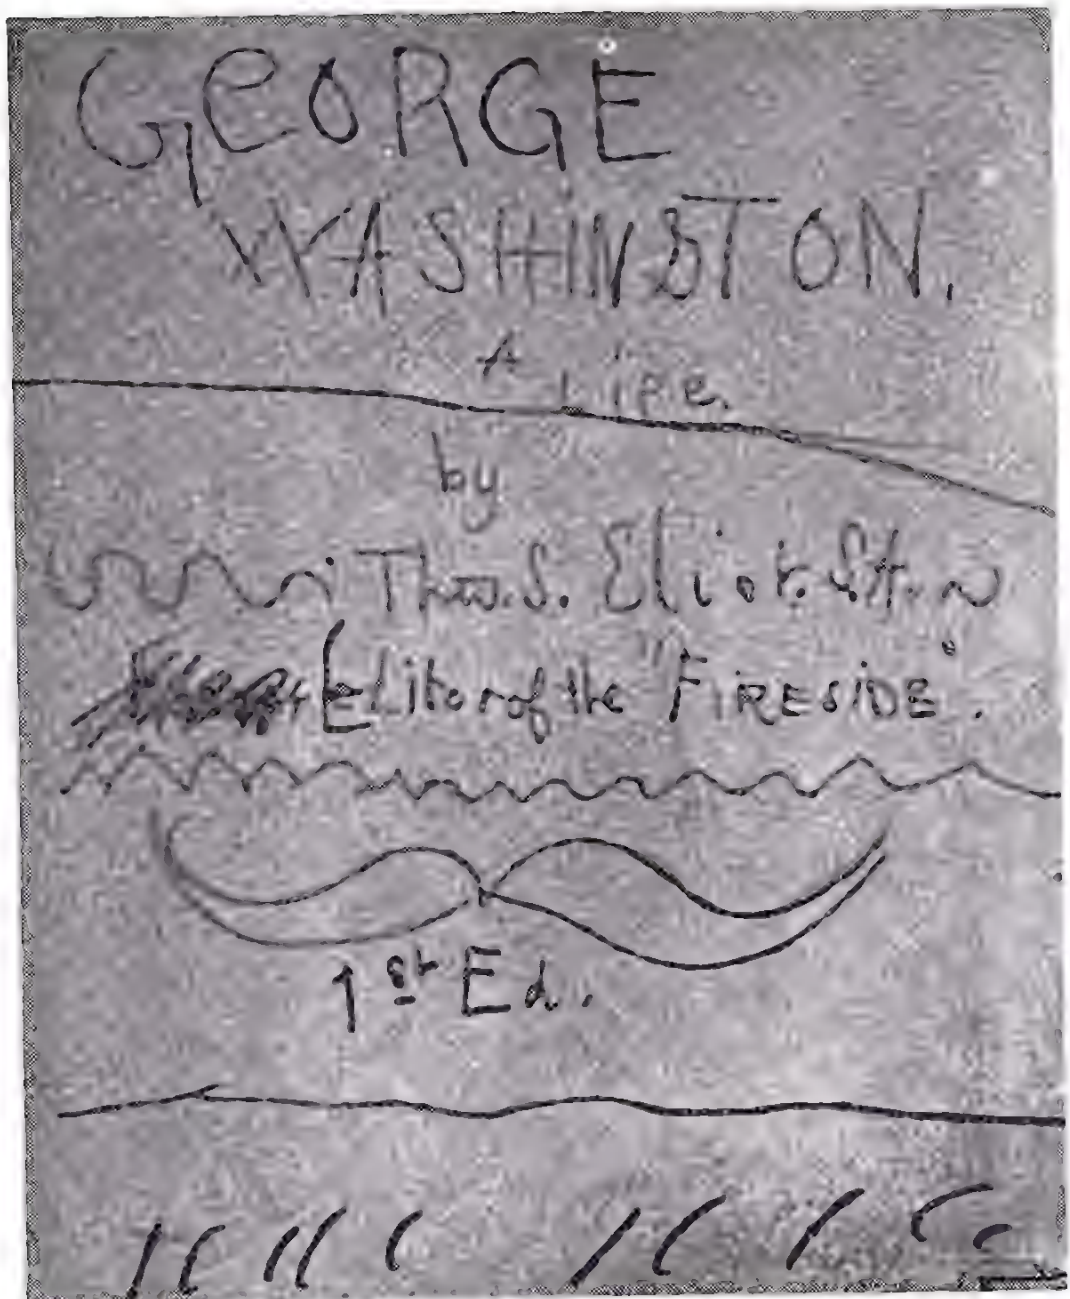 GEORGE
WASHINGTON.
A Life.
by
Thos. S. Eliot.
Editor of the "FIRESIDE".
1st Ed.